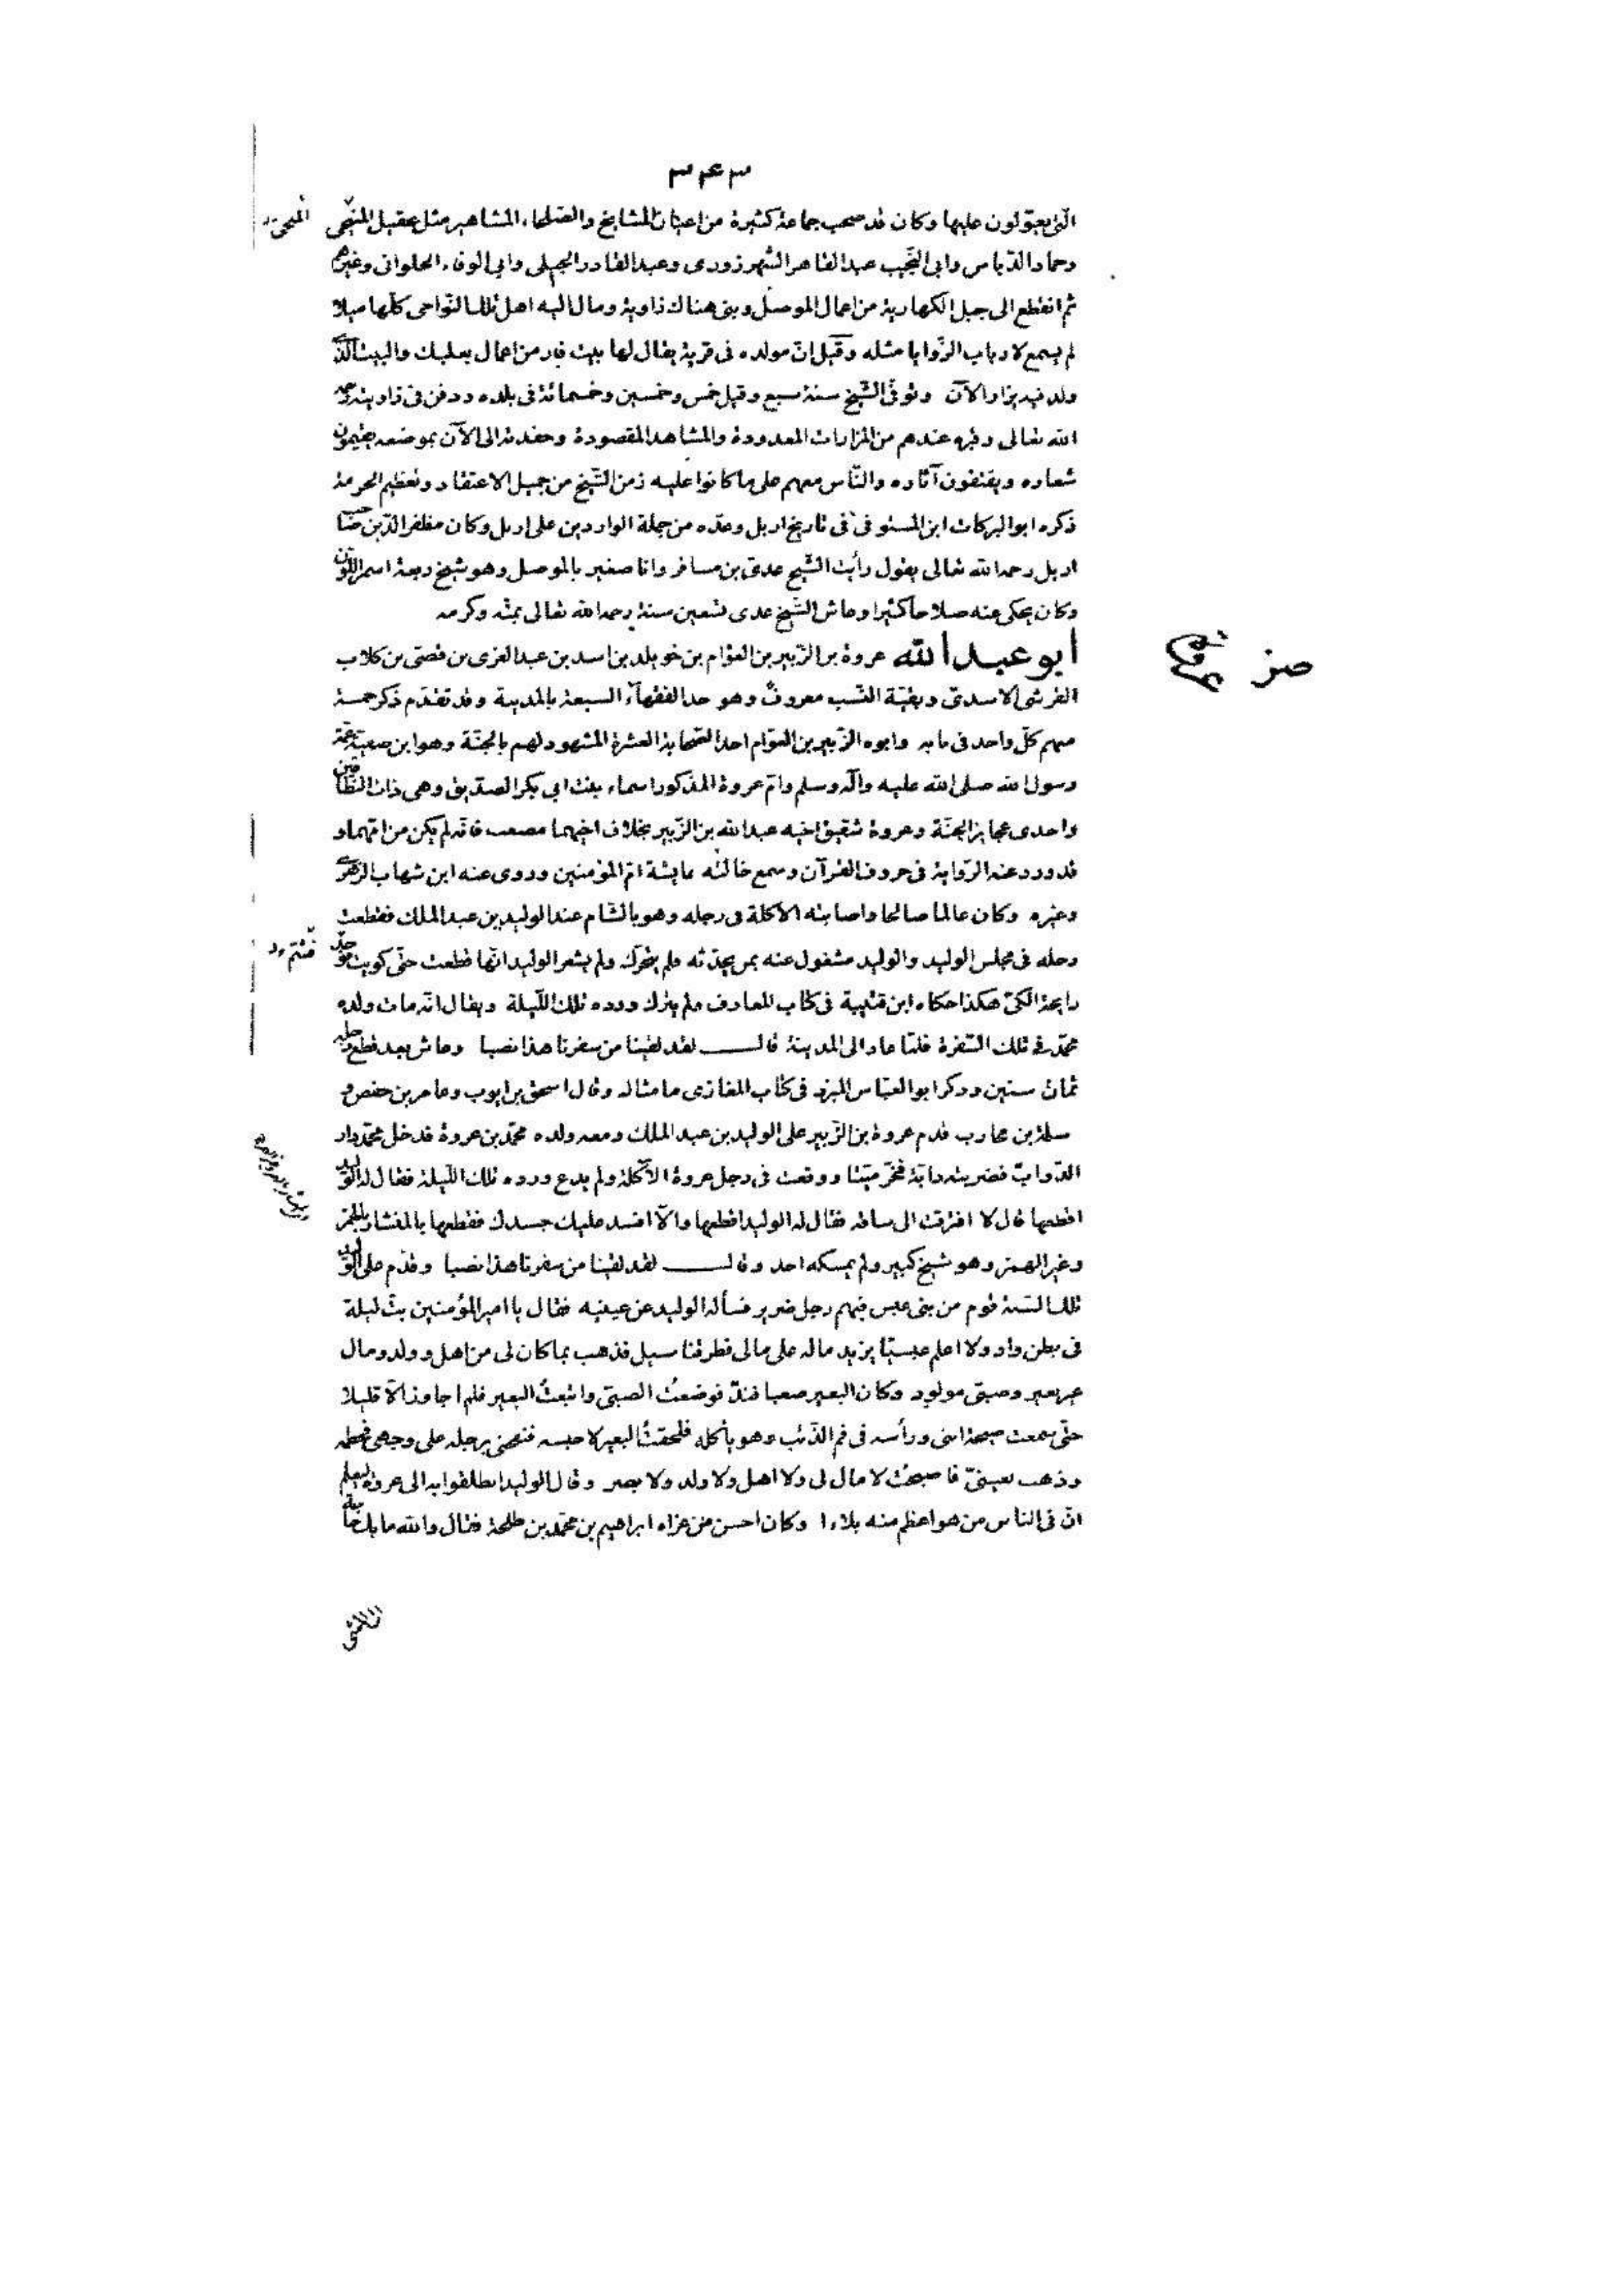 ٣٤٣
التى يعوّلون عليها وكان قد صحب جماعة كثيرة من اعيان المشايخ والصّلحاء المشاهير مثل عقيل المنبجى
المنبجى
وحماد الدّباس وابى النّجيب عبد القاهر الشّهرزورى وعبد القادر الجيلى وابى الوفاء الحلوانى وغيرهم
ثم انقطع الى جبل الهكارية من اعمال الموصل وبنى هناك زاوية ومال اليه اهل تلك النّواحى كلّها ميلا
لم يسمع لارباب الزّوايا مثله وقيل انّ مولده فى قرية يقال لها بيت فار من اعمال بعلبك والبيت الّذى
ولد فيه يزار الآن وتوفّى الشّيخ سنة سبع وقيل خمس وخمسين وخمسمائة فى بلده ودفن فى زاويته رحمه
الله تعالى وقبره عندهم من المزارات المعدودة والمشاهد المقصودة وحفدته الى الآن بموضعه يقيمون
شعاره ويقتفون آثاره والنّاس معهم على ما كانوا عليه زمن الشّيخ من جميل الاعتقاد وتعظيم الحرمة
ذكره ابو البركات ابن المستوفى فى تاريخ اربل وعدّه من جملة الواردين على اربل وكان مظفر الدّين صاحب
اربل رحمه الله تعالى يقول رأيت الشّيخ عدى بن مسافر وانا صغير بالموصل وهو شيخ ربعة اسمر اللّون
وكان يحكى عنه صلاحا كثيرا وعاش الشّيخ عدى تسعين سنة رحمه الله تعالى بمنّه وكرمه
أبو عبد الله عروة بن الزّبير بن العوّام بن خويلد بن اسد بن عبد العزى بن قصىّ بن كلاب
القرشى الاسدىّ وبقيّة النّسب معروف وهو احد الفقهاء السبعة بالمدينة وقد تقدّم ذكر خمسة
منهم كلّ واحد فى بابه وابوه الزّبير بن العوّام احد الصّحابة العشرة المشهود لهم بالجنّة وهو ابن صفيّة عمّة
رسول الله صلى الله عليه وآله وسلم وامّ عروة المذكور اسماء بنت ابى بكر الصدّيق وهى ذات النّطاقين
واحدى عجايز الجنّة وعروة شقيق اخيه عبد الله بن الزّبير بخلاف اخيهما مصعب فانّه لم يكن من امّهما و
قد ورد عنه الرّواية فى حروف القرآن وسمع خالته عايشة امّ المؤمنين وروى عنه ابن شهاب الزهرى
وغيره وكان عالما صالحا واصابته الآكلة فى رجله وهو بالشّام عند الوليد بن عبد الملك فقطعت
رجله فى مجلس الوليد والوليد مشغول عنه بمن يحدّثه فلم يتحرّك ولم يشعر الوليد انّها قطعت حتّى كويت فوجد
رايحة الكىّ هكذا حكاه ابن قتيبة فى كتاب المعارف ولم يترك ورده تلك اللّيلة ويقال انّه مات ولده
محمّد فى تلك السّفرة فلمّا عاد الى المدينة قال لقد لقينا من سفرنا هذا نصبا وعاش بعد قطع رجله
ثمان سنين وذكر ابو العبّاس المبرّد فى كتاب المغازى ما مثاله وقال اسحق بن ايوب وعامر بن حفص و
سلمة بن محارب قدم عروة بن الزّبير على الوليد بن عبد الملك ومعه ولده محمّد بن عروة فدخل محمّد دار
الدّوابّ فضربته دابّة فخرّ ميّتا ووقعت فى رجل عروة الآكلة ولم يدع ورده تلك اللّيلة فقال له الوليد
اقطعها قال لا افترقت الى ساقه فقال له الوليد اقطعها والّا افسدت عليك جسدك فقطعها بالمنشار بالهمز
وغير الهمز وهو شيخ كبير ولم يمسكه احد وقال لقد لقينا من سفرنا هذا نصبا وقدم على الوليد
تلك السّنة قوم من بنى عبس فيهم رجل ضرير فسأله الوليد عن عينيه فقال يا امير المؤمنين بتّ ليلة
فى بطن واد ولا اعلم عبسيّا يزيد ماله على مالى فطرقنا سيل فذهب بما كان لى من اهل وولد ومال
غير بعير وصبىّ مولود وكان البعير صعبا فندّ فوضعت الصبىّ واتبعت البعير فلم اجاوز الّا قليلا
حتى سمعت صيحة ابنى ورأسه فى فم الذّئب وهو يأكله فلحقت البعير لاحبسه فنفحنى برجله على وجهى فحطمه
وذهب بعينىّ فاصبحت لا مال لى ولا اهل ولا ولد ولا بصر وقال الوليد انطلقوا به الى عروة ليعلم
انّ فى الناس من هو اعظم منه بلاءا وكان احسن من عزاه ابراهيم بن محمّد بن طلحة فقال والله ما بك حاجة